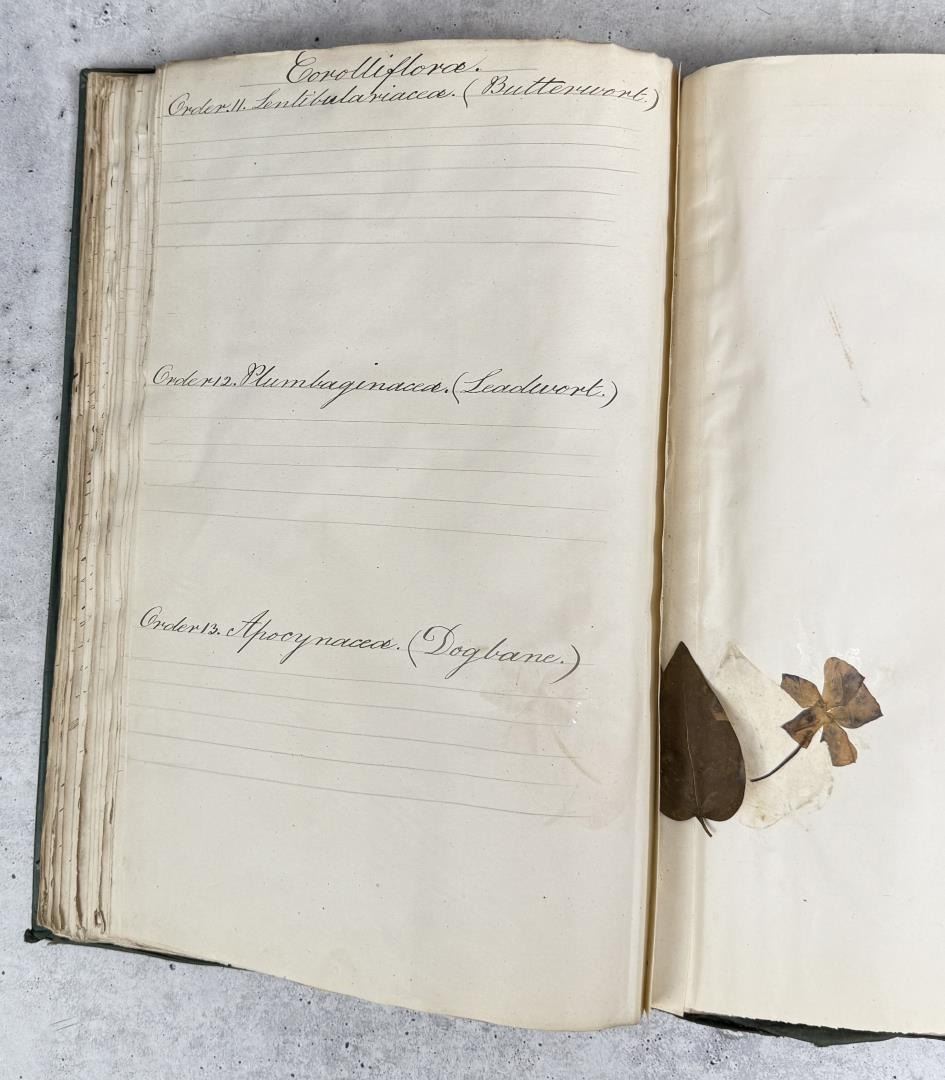 Corollifloræ.
Order.11. Lentibulariaceæ. (Butterwort.)
Order12. Plumbaginaceæ. (Leadwort.)
Order13. Apocynaceæ. (Dogbane.)